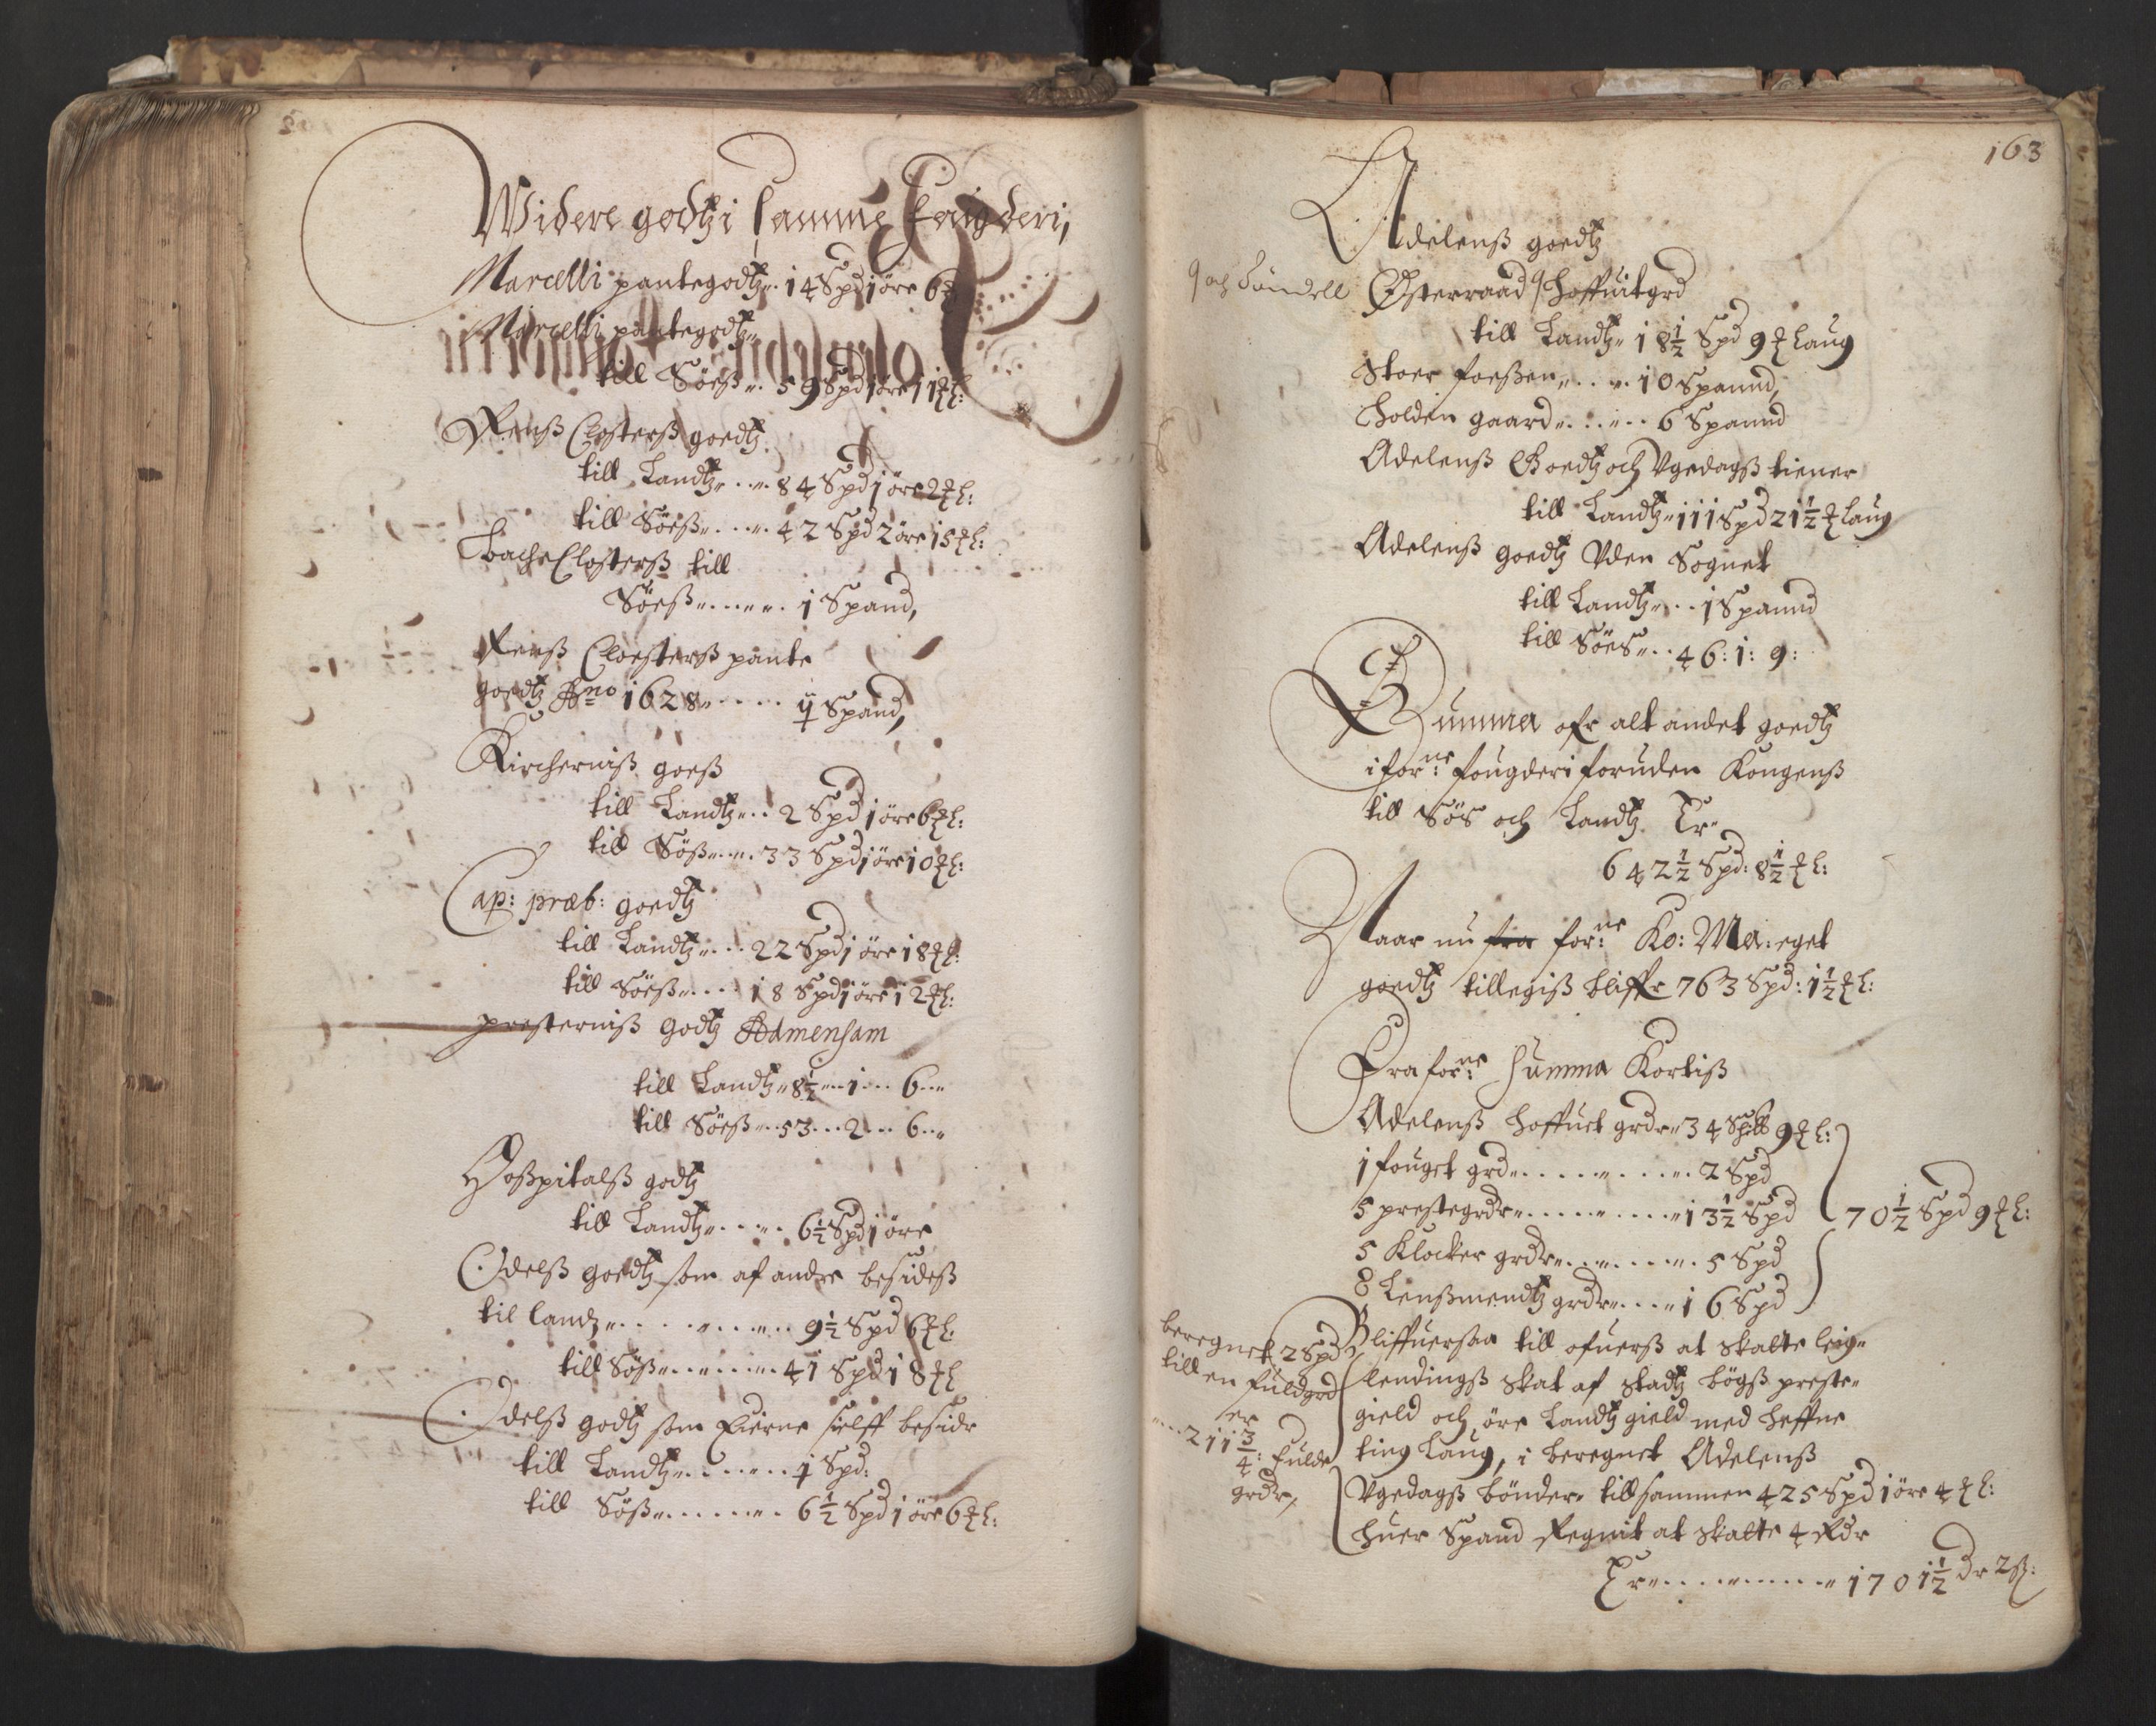 Widere godtz i samme fougderi,
Marcelli pantegodtz 14 Spd 1 öre 6
Marcelli pantegodtz
till Söeß 59 Spd 1 öre 11 l:
Renß Closterß goedtz
till Landtz 84 Spd 1 öre 2 l:
till Söeß 42 Spd 2 öre 15 l:
Bache Closterß till
Söeß 1 Spand,
Renß Cloesterß pante
goedtz Ano 1628 ij Spand,
Kircherniß goeß
till Landtz 2 Spd 1 öre 6 l:
till Söß 33 Spd 1 öre 10 l:
Cap: præb: goedtz
till Landtz 22 Spd 1 öre 18 l:
till Söeß 18 Spd 1 öre 12 l:
presterniß godtz Admensam
till Landtz 8½ 1 6
till Söeß 53 2 6
Hoßpitalß godtz
till Landtz 6½ Spd 1 öre
Odelß goedtz som af andre besideß
til landz 9½ Spd 6 l:
till Söß 41 Spd 18 l
Odelß godtz som Eierne sielff beside
till Landtz 1 Spd:
till Söß 6½ Spd 1 öre 6 l:
163
Adelenß goedtz
och Sundell Østerraad hoffuitgrd
till Landtz 18½ Spd 9 laug
Stoer foeßen 10 Spannd,
Holden gaard 6 Spannd
Adelenß Goedtz och Vgedagß tiener
till Landtz 111 Spd 21½ laug
Adelenß goedtz Vden Sognet
till Landtz 1 Spannd
till Söes 46: 1: 9:
Summa ofr alt andet goedtz
i forne: fougderi foruden Kongenß
till Söß och Landtz Er
642½ Spd: 8½ l:
Naar nu fra forne: Ko: Ma: eget
goedtz tillegiß bliffr 763 Spd: 1½ l:
Fra forne: Summa Kortiß
Adelenß hoffuet grdr 34 9 l:
1 fouget grd 2 Spd
5 prestegrdr 13½ Spd
70½ Spd 9 l:
5 Klocker grdr 5 Spd
8 Lenßmendtz grdr 16 Spd
beregnet 2 Spd
till en fuldgrd
er
211¾: fulde
grdr,
Bliffuersaa till ofuerß at skatte leig
lendingß skat af stadtz bögß preste
gield och öre Landtz gield med heffne
ting laug, i beregnet Adelenß
Vgedagß bönder till sammen 425 Spd 1 öre 4 l:
huer Spand Regnit at skatte 4 Rdr
Er 1701½ dr 2 ß: